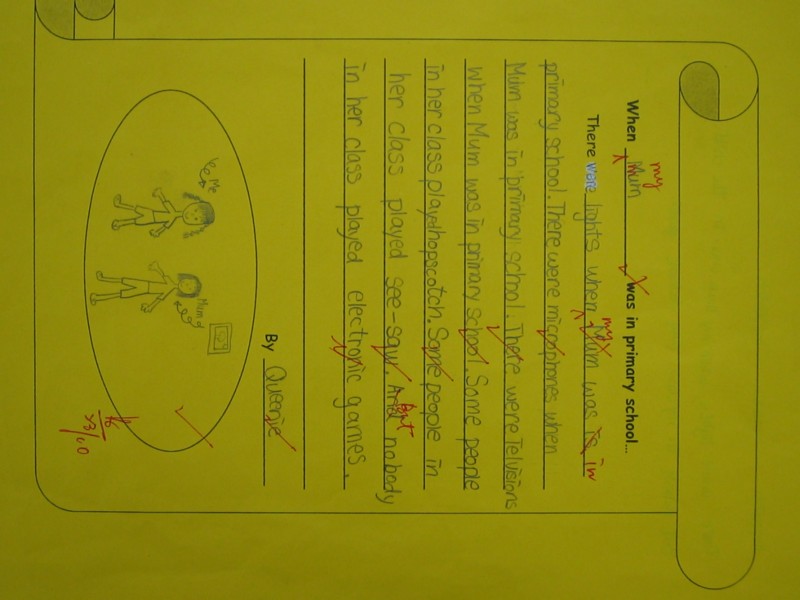 my
When Mum was in primary school...
There were lights when Mum was is in
my
primary school. There were micophones when
Mum was in primary school. There were Telvisions
when Mum was in primary school. Some people
in her class played hopscotch. Some people in
her class played see-saw. And nobody
but
in her class played electronic games.
By Queenie
Me
Mum